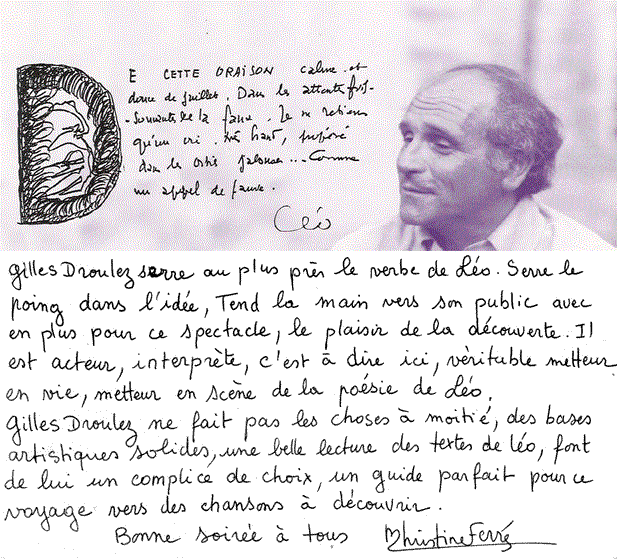 DE CETTE ORAISON calme et
douce de juillet. Dans les attentes
de la faune. Je ne retiens
qu'un cri. très haut,
dans les ... Comme
un appel de faune.
Léo
Gilles Droulez serre au plus près le verbe de Léo. Serre le
poing dans l'idée, Tend la main vers son public avec
en plus pour ce spectacle, le plaisir de la découverte. Il
est acteur, interprète, c'est à dire ici, véritable metteur
en vie, metteur en scène de la poésie de Léo.
Gilles Droulez ne fait pas les choses à moitié, des bases
artistiques solides, une belle lecture des textes de Léo, font
de lui un complice de choix, un guide parfait pour ce
voyage vers des chansons à découvrir.
Bonne soirée à tous Mchristine Ferré